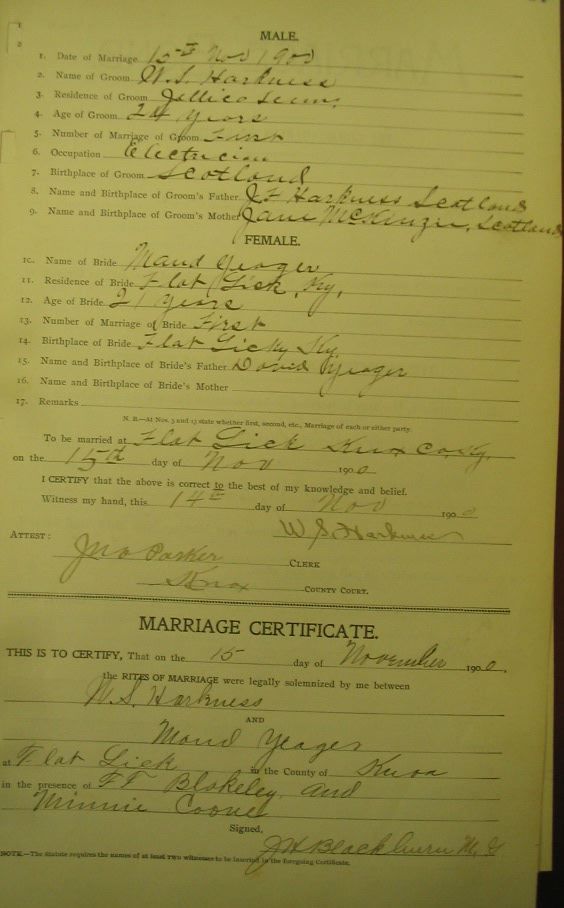 MALE.
1. Date of Marriage 15th Nov 1900
2. Name of Groom W. S. Harkness
3. Residence of Groom Jellico Tenn,
4. Age of Groom 24 years
5. Number of Marriage of Groom First
6. Occupation Electrician
7. Birthplace of Groom Scotland
8. Name and Birthplace of Groom's Father J F Harkness Scotland
9. Name and Birthplace of Groom's Mother Jane McKinzie, Scotland
FEMALE.
10. Name of Bride Maud Yeager
11. Residence of Bride Flat Lick, Ky,
12. Age of Bride 21 years
13. Number of Marriage of Bride First
14. Birthplace of Bride Flat Lick, Ky
15. Name and Birthplace of Bride's Father David Yeager
16. Name and Birthplace of Bride's Mother
17. Remarks
N. B.—At Nos. 5 and 13 state whether first, second, etc., Marriage of each or either party.
To be married at Flat Lick Knox Co Ky,
on the 15th day of Nov 1900
I CERTIFY that the above is correct to the best of my knowledge and belief.
Witness my hand, this 14th day of Nov 1900
W S Harkness
ATTEST:
Jno Parker CLERK
Knox COUNTY COURT.
MARRIAGE CERTIFICATE.
THIS IS TO CERTIFY, That on the 15 day of November 1900,
the RITES OF MARRIAGE were legally solemnized by me between
W. S. Harkness
AND
Maud Yeager
at Flat Lick in the County of Knox
in the presence of Blakeley and
Minnie
Signed,
J H Blackburn M. G
NOTE.—The Statute requires the names of at least TWO witnesses to be inserted in the foregoing Certificate.